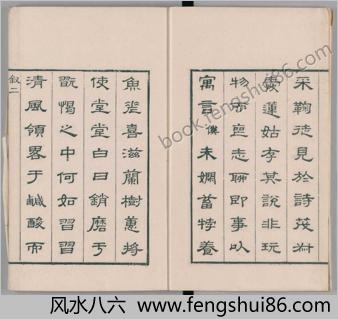 采鞠徒見於詩英州
愛蓮姑存其說非玩
物亦無志聊即事以
寓言僕未嫻畜牸養
魚丞喜滋蘭樹蕙將
使堂堂白日銷磨于
翫愒之中何如習習
清風領畧于鹹酸而
叙二
book.fengshui86.com
风水八六 www.fengshui86.com